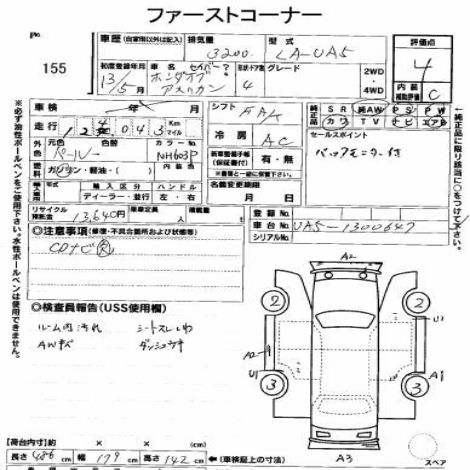 ファーストコーナー
No.
155
車歴 (自家用以外は記入)
排気量
3200
型式
LA-UA5
評価点
4
初度登録年月
13/5
ホンダオブアメリカン
セイバー?
形状・ドア数
4
グレード
2WD・4WD
内装補助評価
C
車検 年 月
シフト
FAK
純正品
SR 純AW PS PW
カワ TV ナビ エアB
走行
124,043
Km
マイル
冷房
AC
セールスポイント
バックモニター付
外色
パール
色替
カラーNo
NH603P
燃料 ガソリン・軽油・( )
新車整備手帳(保証書付)
有・無
※書類と一緒に保管して下さい。
輸入区分
ディーラー・並行
ハンドル
左・右
名義変更期限
月 日
リサイクル預託金
13,640円
乗車定員
人
積載量
t
登録No.
車台No.
UA5-1300647
シリアルNo.
◎注意事項 (修復・不具合箇所および状態等)
CDナビ
◎検査員報告 (USS使用欄)
ルーム内汚れ シートスレ
AWキズ
A2
2 2
U1
A2
A1
3 3
U1
A3
【荷台内寸】 × ×
長さ 486 cm 幅 179 cm 高さ 142 cm
(車検証上の寸法)
スペア
※必ず油性ボールペンをご使用下さい。水性ボールペンは使用できません。
純正品に限り該当品に○をつけて下さい。